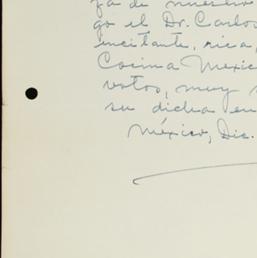 za de nuestro
go el Dr. Carlos
incitante, rica,
Cocina Mexic
votos, muy s
su dicha en
México, Dic.